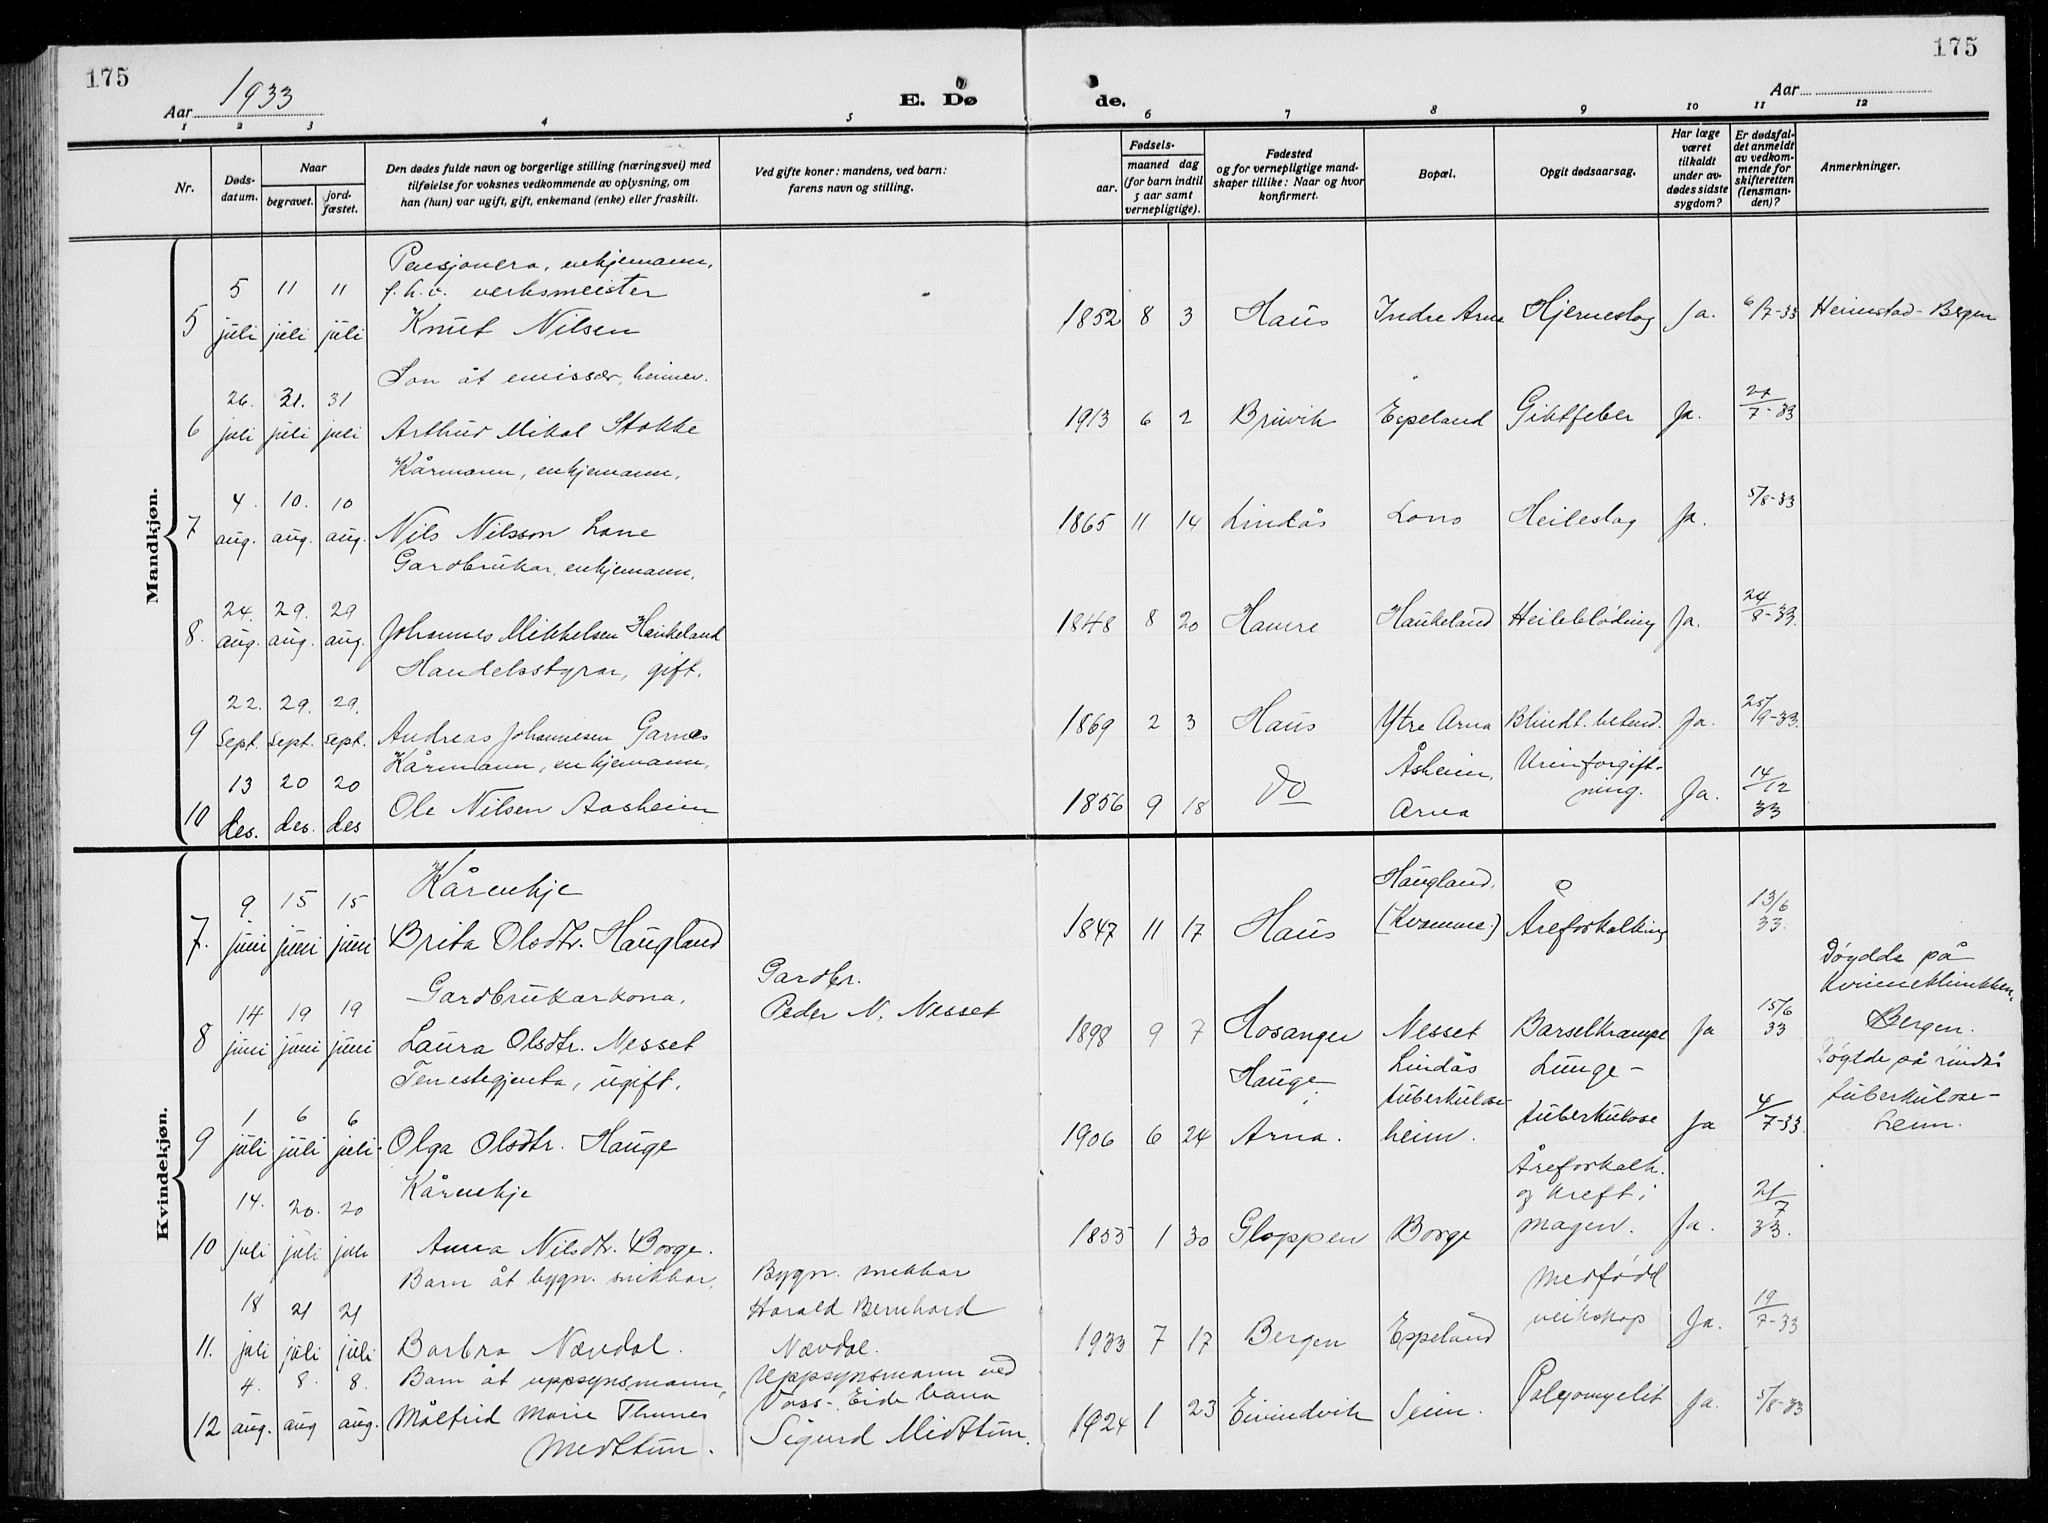 175
175
Aar 1933
E. Dø
de.
Aar
1 2 3 4 5 6 7 8 9 10 11 12
Nr.
Døds-
datum.
Naar
begravet.
jord-
fæstet.
Den dødes fulde navn og borgerlige stilling (næringsvei) med
tilføielse for voksnes vedkommende av oplysning, om
han (hun) var ugift, gift, enkemand (enke) eller fraskilt.
Ved gifte koner: mandens, ved barn:
farens navn og stilling.
Fødsels-
aar.
maaned dag
(for barn indtil
5 aar samt
vernepligtige).
Fødested
og for vernepligtige mand-
skaper tillike: Naar og hvor
konfirmert.
Bopæl.
Opgit dødsaarsag.
Har læge
været
tilkaldt
under av-
dødes sidste
sygdom?
Er dødsfal-
det anmeldt
av vedkom-
mende for
skifteretten
(lensman-
den)?
Anmerkninger.
Mandkjøn.
Pensjonera, enkjemann,
5 11 11 f.h.v. verksmeister
5 juli juli juli Knut Nilsen 1852 8 3 Haus Indre Arna Hjerneslag Ja. 6/7-33 Heimstad - Bergen
Son åt emissær, heimev.
26. 31. 31
6 juli juli juli Arthur Mikal Stokke 1913 6 2 Bruvik Espeland Giktfeber Ja. 27/7-33
Kårmann, enkjemann,
4. 10. 10
7 aug. aug. aug. Nils Nilsson Lone 1865 11 14 Lindås Lono Heileslag Ja. 5/8-33
Gardbrukar, enkjemann,
24. 29. 29
8. aug. aug. aug. Johannes Mikkelsen Haukeland 1848 8 20 Hamre Haukeland Heileblöding Ja. 24/8-33.
Handelsstyrar, gift.
22. 29. 29.
9 sept. sept. sept. Andreas Johannesen Garnes 1869 2 3 Haus Ytre Arna Blindt. betend. Ja. 25/9-33.
Kårmann, enkjemann,
13 20 20
10 des. des. des Ole Nilsen Aasheim 1856 9 18 Do Åsheim, Arna Urinforgift-
ning. Ja. 14/12 33
Kvindekjøn.
Kårenkje
9 15 15
7. juni juni juni Brita Olsdtr. Haugland 1847 11 17 Haus Haugland. (Kvamme.) Åreforkalking 13/6 33.
Gardbrukarkona, Gardbr.
14 19 19 Peder N. Nesset
8 juni juni juni Laura Olsdtr. Nesset 1898 9 7 Hosanger Nesset Barselkrampe Ja 15/6 33 Döydde på
Kvinneklinikken,
Bergen.
Tenestegjenta, ugift.
1 6 6
9 juli juli juli. Olga Olsdtr. Hauge 1906 6 24 Hauge, Arna. Lindås
tuberkulose-
heim. Lunge-
tuberkulose Ja 4/7-33. Döydde på Lindås
tuberkulose-
heim.
Kårenkje
14. 20. 20
10 juli juli juli Anna Nilsdtr. Borge. 1855 1 30 Gloppen Borge Åreforkalk.
og kreft i
magen. Ja. 21/7 33.
Barn åt bygn. snikkar, Bygn. snikkar
18 21 21 Harald Bernhard
11. juli juli juli Barbra Nævdal. Nævdal. 1933 7 17 Bergen Espeland medfödd
veikskap Ja. 19/7-33
4. 8. 8. Barn åt uppsynsmann, Uppsynsmann ved
Voss-Eide bana
12 aug. aug aug. Målfrid Marie Thunes Sigurd Midttun. 1924 1 23 Eivindvik Seim. Polyomyelit Ja. 5/8-33
Midttun.